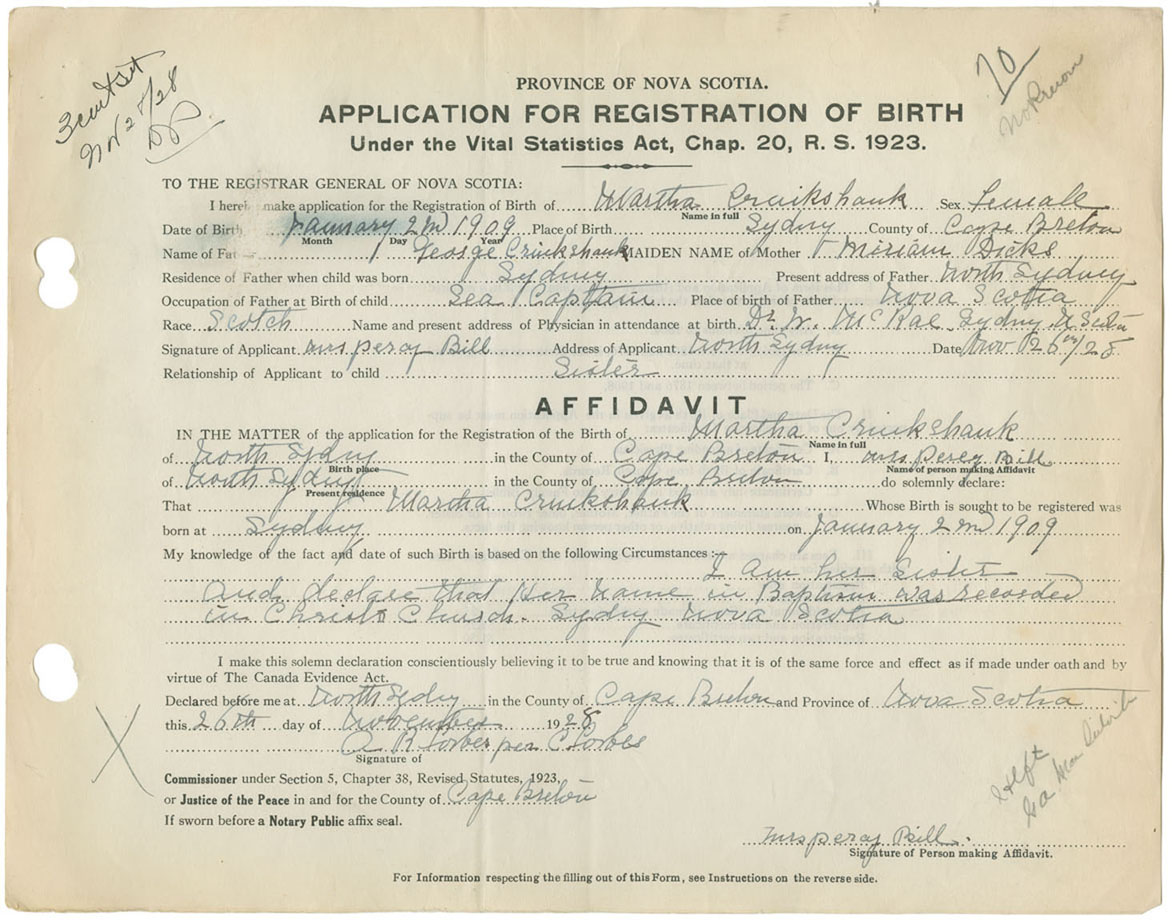 Nov 27/28
70
PROVINCE OF NOVA SCOTIA.
APPLICATION FOR REGISTRATION OF BIRTH
Under the Vital Statistics Act, Chap. 20, R. S. 1923.
TO THE REGISTRAR GENERAL OF NOVA SCOTIA:
I here make application for the Registration of Birth of Martha Cruikshank Sex Femall
Name in full
Date of Birth January 2nd 1909 Place of Birth Sydny County of Cape Breton
Month Day Year
Name of Fat George Cruikshank MAIDEN NAME of Mother Miriam Dicks
Residence of Father when child was born Sydney Present address of Father North Sydney
Occupation of Father at Birth of child Sea Captain Place of birth of Father Nova Scotia
Race Scotch Name and present address of Physician in attendance at birth Dr. W. McRae. Sydney
Signature of Applicant Mrs percy Bill Address of Applicant North Sydney Date Nov 26th/28
Relationship of Applicant to child Sister
AFFIDAVIT
IN THE MATTER of the application for the Registration of the Birth of Martha Cruikshank
Name in full
of North Sydny in the County of Cape Breton I, Mrs percy Bill
Birth place Name of person making Affidavit
of North Sydny in the County of Cape Breton do solemnly declare:
Present residence
That Martha Cruikshank Whose Birth is sought to be registered was
born at Sydney on January 2nd 1909
My knowledge of the fact and date of such Birth is based on the following Circumstances :—
I am her Sister
and declare that Her name in Baptism was recorded
in Christ Church. Sydney Nova Scotia
I make this solemn declaration conscientiously believing it to be true and knowing that it is of the same force and effect as if made under oath and by
virtue of The Canada Evidence Act.
Declared before me at North Sydny in the County of Cape Breton and Province of Nova Scotia
this 26th day of November 1928
A R Forbes per C Forbes
Signature of
Commissioner under Section 5, Chapter 38, Revised Statutes, 1923,
or Justice of the Peace in and for the County of Cape Breton
If sworn before a Notary Public affix seal.
Mrs percy Bill
Signature of Person making Affidavit.
For Information respecting the filling out of this Form, see Instructions on the reverse side.